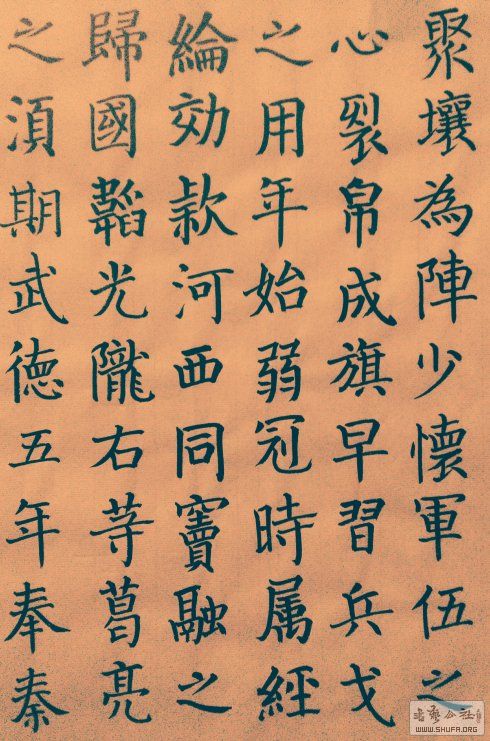 聚壤為陣少懷軍伍之
心裂帛成旗早習兵戈
之用年始弱冠時属經
綸効款河西同竇融之
歸國韜光隴右䓁葛亮
之湏期武德五年奉秦
WWW.SHUFA.ORG